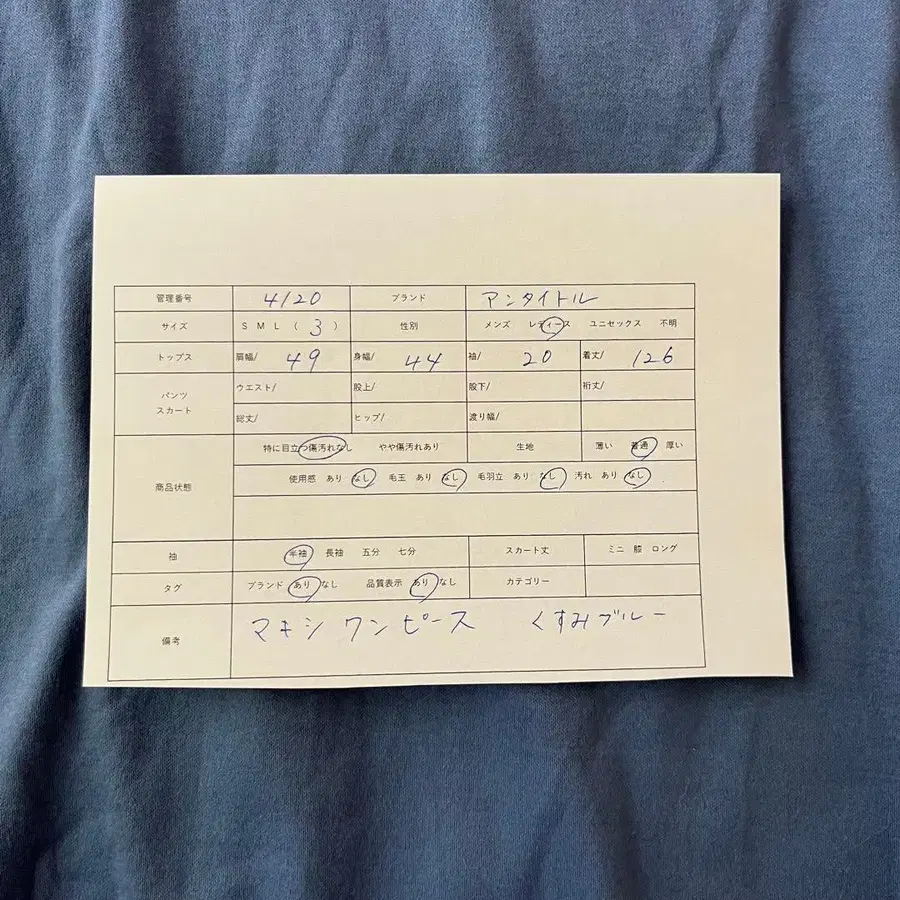 管理番号 4120 ブランド アンタイトル
サイズ S M L ( 3 ) 性別 メンズ レディース ユニセックス 不明
トップス 肩幅/ 49 身幅/ 44 袖/ 20 着丈/ 126
パンツ スカート ウエスト/ 股上/ 股下/ 裄丈/
総丈/ ヒップ/ 渡り幅/
特に目立つ傷汚れなし やや傷汚れあり 生地 薄い 普通 厚い
商品状態 使用感 あり なし 毛玉 あり なし 毛羽立 あり なし 汚れ あり なし
袖 半袖 長袖 五分 七分 スカート丈 ミニ 膝 ロング
タグ ブランド あり なし 品質表示 あり なし カテゴリー
備考 マキシ ワンピース くすみブルー